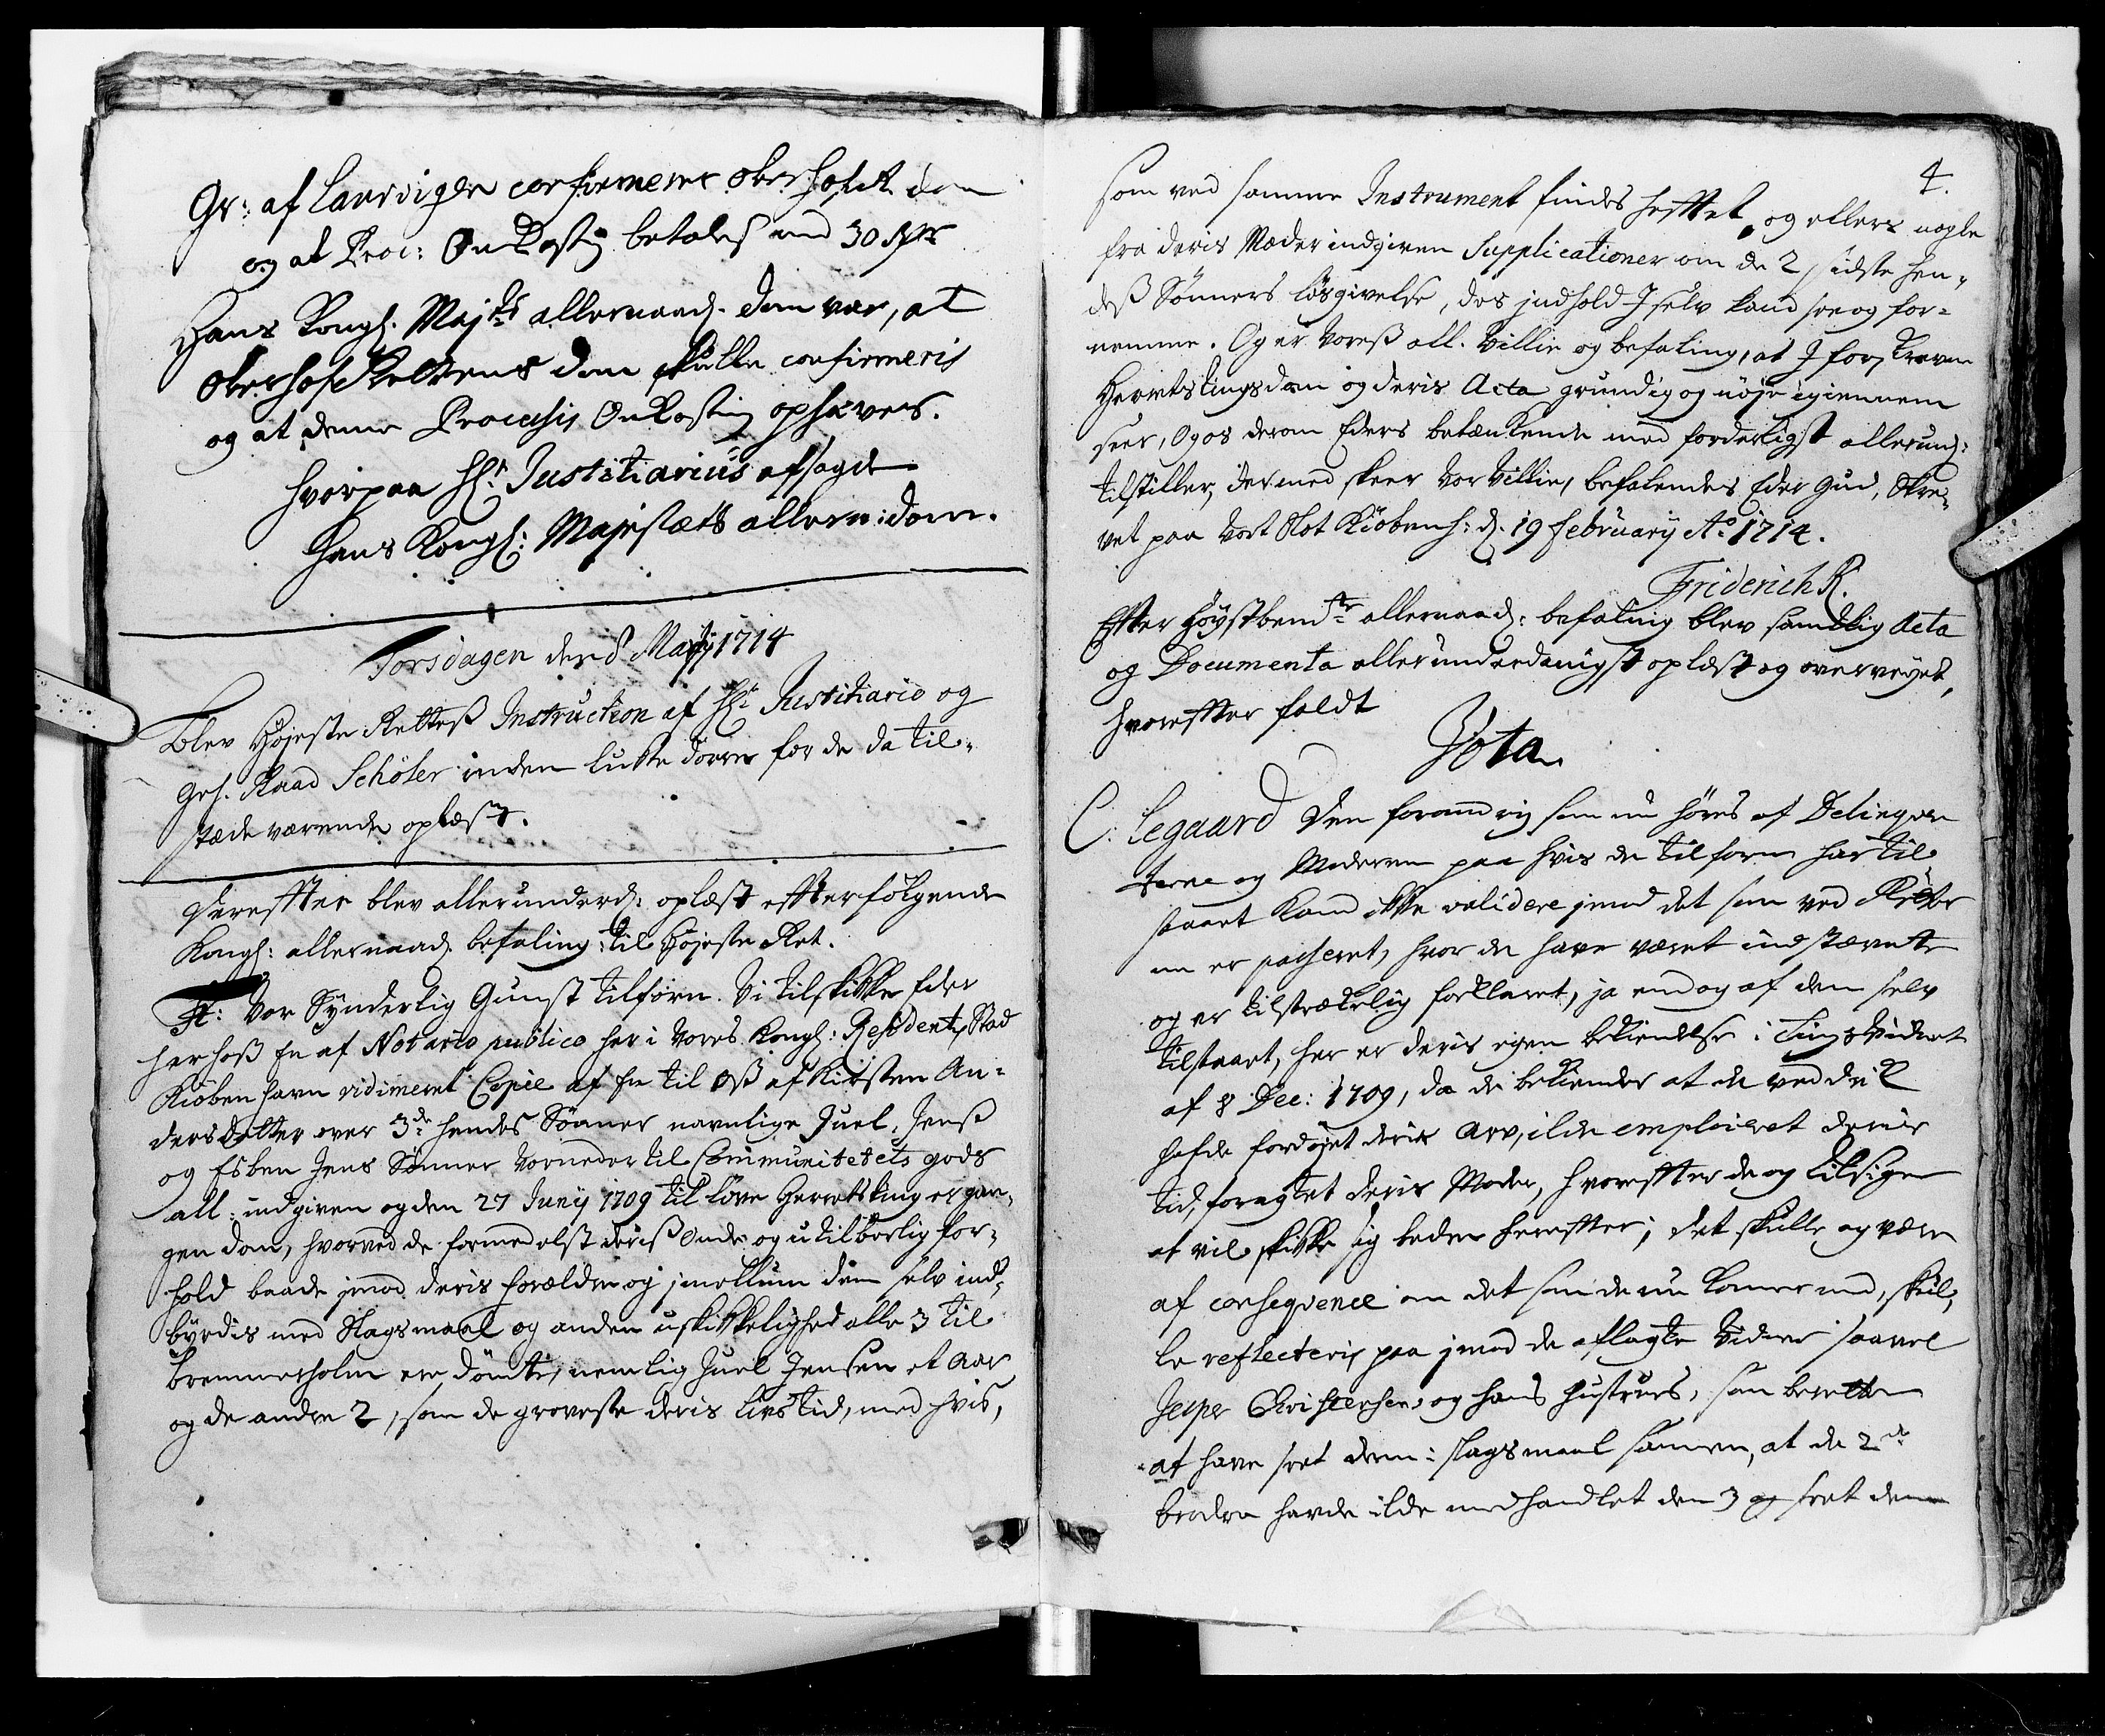 Gr: af Laurvigen confirmere Oberhofrettens dom
og at Proc: Omkostning betales med 30 Rdr
Hans Kongl. Majts allernaad. dom var, at
Oberhofrettens dom skulle confirmeris
og at denne Processis Omkostning ophæves.
hvorpaa Hr. Justitiarius afsagde
Hans Kongl: Majestæts allern: dom.
Torsdagen den 8 Martj 1714
Blev Højeste Retteß Instruction af Hr Justitiario og
Geh. Raad Schöler inden lukte dørre for de da til-
stæde værende oplæst.
Dereffter blev allerunderd: oplæst effterfølgende
Kongl: allernaad. befaling til Højeste Ret.
Ft: Vor Synderlig Gunst tilforn. Vi tilskikke Eder
herhoß en af Notario publico her i Vores Kongl: Residentz Stad
Kiøbenhavn vidimeret Copie af en til oß af Kirsten An-
dersdatter over 3de hendes Sønner navnlige Juel, Jenß
og Esben Jens Sønner Vorneder til Communitetets gods
all: indgiven og den 27 Junij 1709 til Løve Herretsting ergan-
gen dom, hvorved de formedelst deriß onde og utilbørlig for-
hold baade imod deris forældre og imellum dem selv ind-
byrdis med Slagsmaal og anden uskikkelighed alle 3 til
Bremmerholm ere dømte, nemlig Juel Jensen et Aar
og de andre 2, som de groveste deris Livs tid, med hvis,
4.
som ved samme Instrument findes hefftet, og ellers nogle
fra deris Moder indgiven Supplicationer om de 2 sidste hen-
deß Sønners løsgivelse, des indhold I selv kand see og for-
nemme. Og er Voreß all. Villie og befaling, at I forskreven
Herretstingsdom og deris Acta grundig og nøje igiennem
seer, og os derom Eders betænkende med forderligst allerund:
tilstiller, dermed skeer Vor Villie, befalendes Eder Gud, Skre-
vet paa Vort Slot Kiøbenh: d. 19 februarij Ao 1714.
Friderich R.
Effter Høystbemte allernaad: befaling blev samtlig Acta
og Documenta allerunderdanigst oplæst og overveyet,
hvoreffter faldt
Vota.
C: Segaard Den forandring som nu høres af Delinqven
terne og Moderen paa hvis de tilforn har til
staaet kand ikke validere imod det som ved Retter
nu er passeret, hvor de have været indstævnte
og er tilstrækkelig forklaret, ja endog af dem selv
tilstaaet, her er deris egen bekiendelse i Tingsvidnet
af 8 Dec: 1709, da de bekiender at de ved drik
hafde fordøjet deris Arv, ilde emploieret deris
tid, foragtet deris Moder, hvoreffter de og tilsiger
at vil skikke sig bedre hereffter; det skulle og være
af conseqvence om det som de nu komer med, skul-
le reflecteris paa imod de aflagte Vidner saavel
Jesper Christensen, og hans hustrues, som beretter
at have seet dem i slagsmaal samen, at de 2de
brødre havde ilde medhandlet den 3 og seet dem